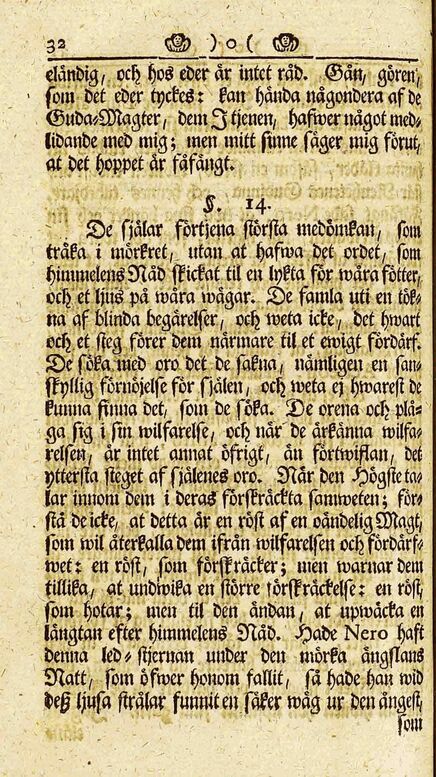 32 ) o (
eländig, och hos eder är intet råd. Gån, gören,
som det eder tyckes: kan hända någondera af de
Guda-Magter, dem I tjenen, hafwer något med-
lidande med mig; men mitt sinne säger mig förut,
at det hoppet är fåfängt.
§. 14.
De själar förtjena största medömkan, som
tråka i mörkret, utan at hafwa det ordet, som
himmelens Nåd skickat til en lykta för wåra fötter,
och et ljus på wåra wägar. De famla uti en tök-
na af blinda begärelser, och weta icke, det hwart
och et steg förer dem närmare til et ewigt fördärf.
De söka med oro det de sakna, nämligen en san-
skyllig förnöjelse för själen, och weta ej hwarest de
kunna finna det, som de söka. De orena och plå-
ga sig i sin wilfarelse, och när de ärkänna wilfa-
relsen, är intet annat öfrigt, än förtwiflan, det
yttersta steget af själenes oro. När den Högste ta-
lar innom dem i deras förskräckta samweten; för-
stå de icke, at detta är en röst af en oändelig Magt,
som wil återkalla dem ifrån wilfarelsen och fördärf-
wet: en röst, som förskräcker; men warnar dem
tillika, at undwika en större förskräckelse: en röst,
som hotar; men til den ändan, at upwäcka en
längtan efter himmelens Nåd. Hade Nero haft
denna led-stjernan under den mörka ängslans
Natt, som öfwer honom fallit, så hade han wid
deß ljusa strålar funnit en säker wäg ur den ångest,
som